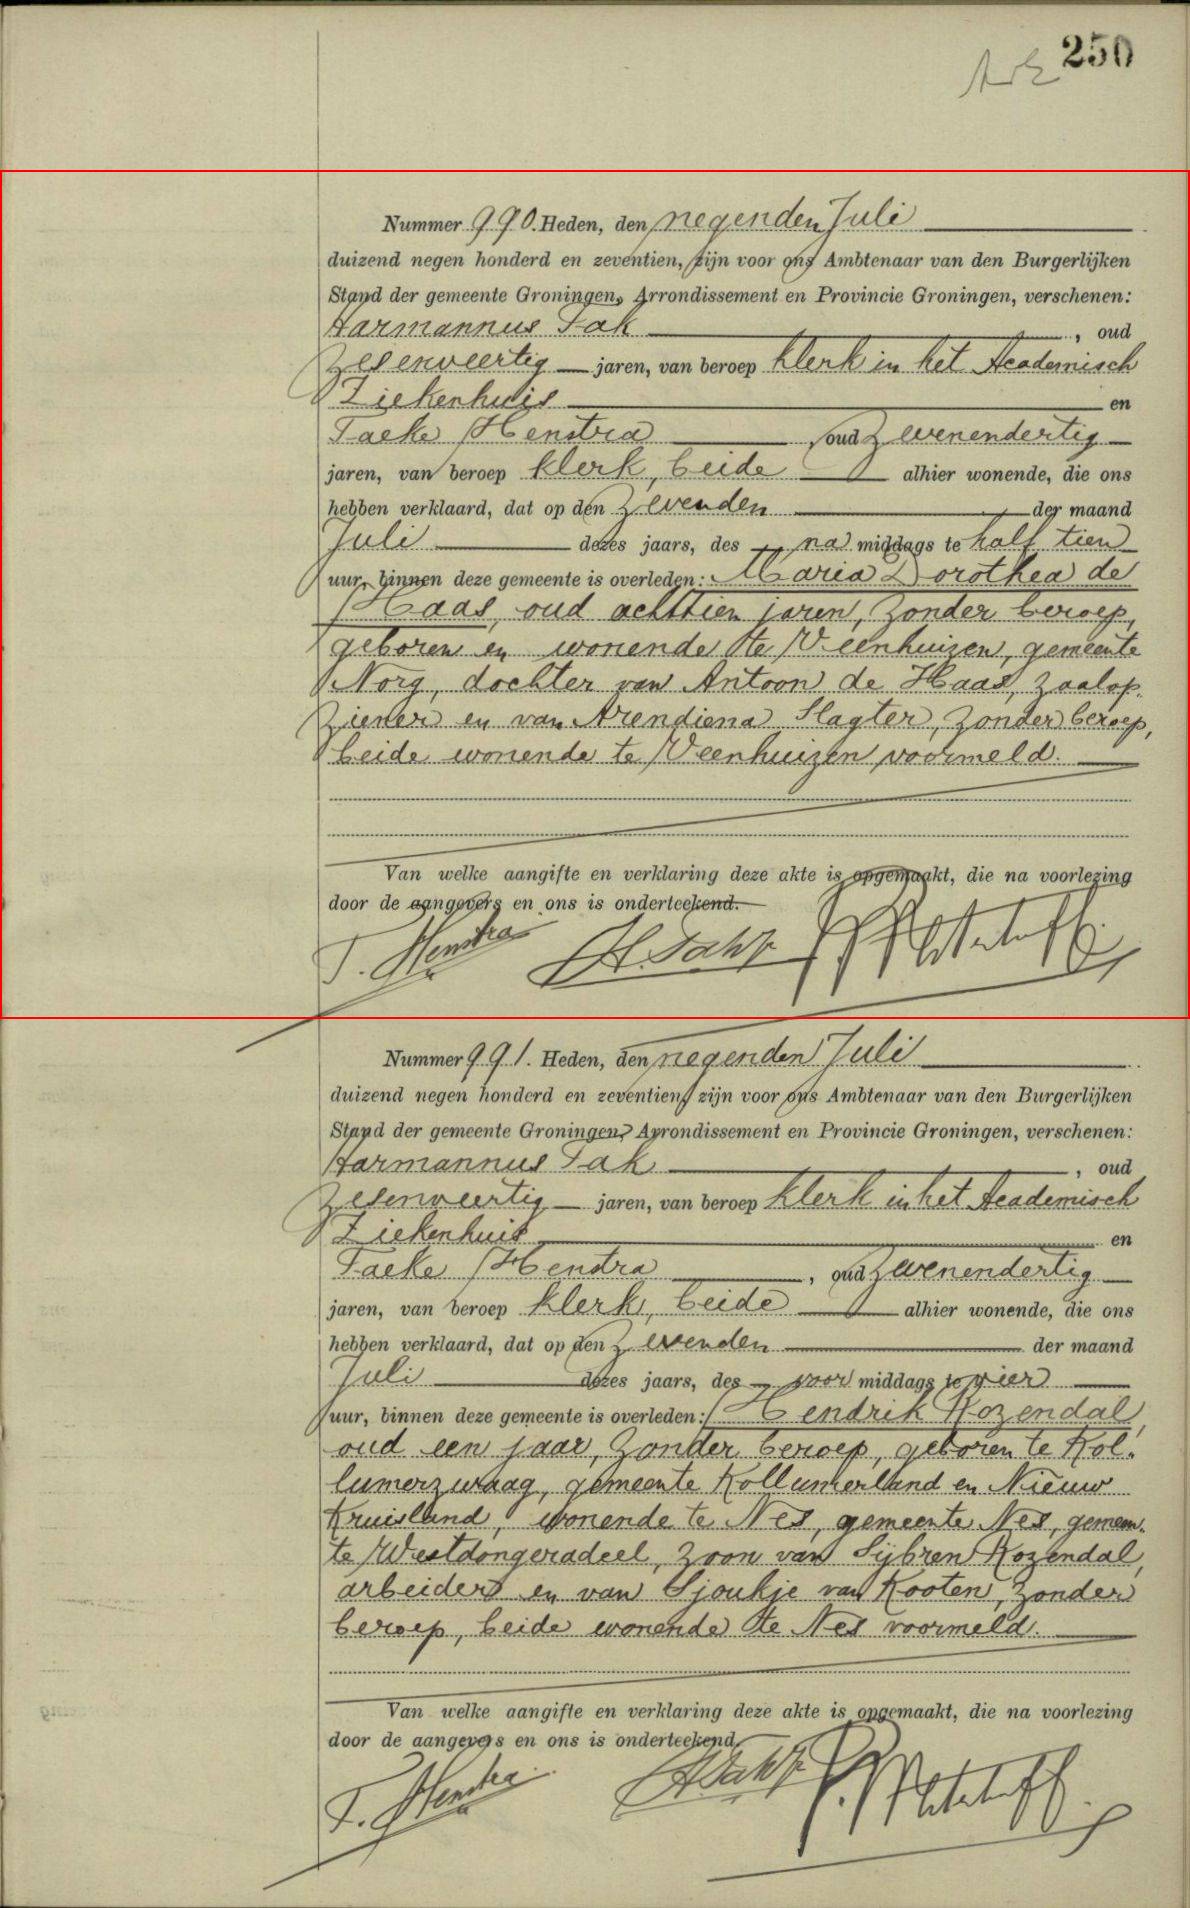 250
Nummer 990. Heden, den negenden Juli
duizend negen honderd en zeventien, zijn voor ons Ambtenaar van den Burgerlijken
Stand der gemeente Groningen, Arrondissement en Provincie Groningen, verschenen:
Harmannus Tak, oud
zesenveertig jaren, van beroep klerk in het Academisch
Ziekenhuis en
Taeke Henstra, oud zevenendertig
jaren, van beroep klerk, beide alhier wonende, die ons
hebben verklaard, dat op den zevenden der maand
Juli dezes jaars, des na middags te half tien
uur, binnen deze gemeente is overleden: Maria Dorothea de
Haas, oud achttien jaren, zonder beroep,
geboren en wonende te Veenhuizen, gemeente
Norg, dochter van Antoon de Haas, zaalop-
ziener en van Arendiena Slagter, zonder beroep,
beide wonende te Veenhuizen voormeld.
Van welke aangifte en verklaring deze akte is opgemaakt, die na voorlezing
door de aangevers en ons is onderteekend.
T. Henstra H. Tak
Nummer 991. Heden, den negenden Juli
duizend negen honderd en zeventien, zijn voor ons Ambtenaar van den Burgerlijken
Stand der gemeente Groningen, Arrondissement en Provincie Groningen, verschenen:
Harmannus Tak, oud
zesenveertig jaren, van beroep klerk in het Academisch
Ziekenhuis en
Taeke Henstra, oud zevenendertig
jaren, van beroep klerk, beide alhier wonende, die ons
hebben verklaard, dat op den zevenden der maand
Juli dezes jaars, des voor middags te vier
uur, binnen deze gemeente is overleden: Hendrik Rozendal,
oud een jaar, zonder beroep, geboren te Kol-
lumerzwaag, gemeente Kollumerland en Nieuw
Kruisland, wonende te Nes, gemeente Nes, gemeen-
te Westdongeradeel, zoon van Sijbren Rozendal,
arbeider en van Sjoukje van Kooten, zonder
beroep, beide wonende te Nes voormeld.
Van welke aangifte en verklaring deze akte is opgemaakt, die na voorlezing
door de aangevers en ons is onderteekend.
T. Henstra H. Tak